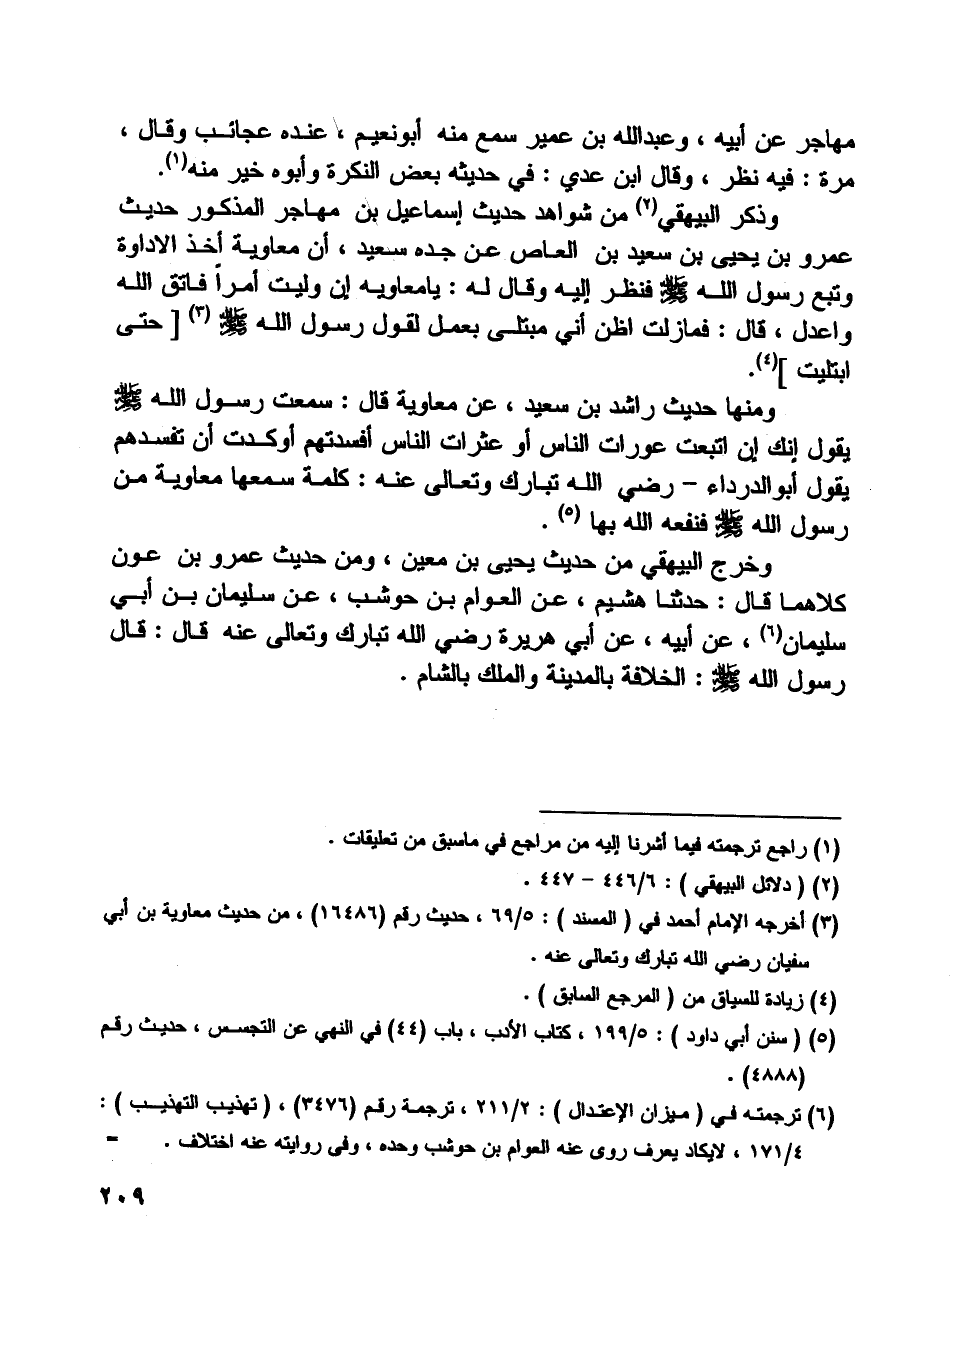 مهاجر عن أبيه ، وعبدالله بن عمير سمع منه أبونعيم ، عنده عجائب وقال ،
مرة : فيه نظر ، وقال ابن عدي : في حديثه بعض النكرة وأبوه خير منه(١).
وذكر البيهقي(٢) من شواهد حديث إسماعيل بن مهاجر المذكور حديث
عمرو بن يحيى بن سعيد بن العاص عن جده سعيد ، أن معاوية أخذ الاداوة
وتبع رسول الله ﷺ فنظر إليه وقال له : يامعاويه إن وليت أمراً فاتق الله
واعدل ، قال : فمازلت اظن أني مبتلى بعمل لقول رسول الله ﷺ (٣) [ حتى
ابتليت ](٤).
ومنها حديث راشد بن سعيد ، عن معاوية قال : سمعت رسول الله ﷺ
يقول إنك إن اتبعت عورات الناس أو عثرات الناس أفسدتهم أوكدت أن تفسدهم
يقول أبوالدرداء - رضي الله تبارك وتعالى عنه : كلمة سمعها معاوية من
رسول الله ﷺ فنفعه الله بها (٥) .
وخرج البيهقي من حديث يحيى بن معين ، ومن حديث عمرو بن عون
كلاهما قال : حدثنا هشيم ، عن العوام بن حوشب ، عن سليمان بن أبي
سليمان(٦) ، عن أبيه ، عن أبي هريرة رضي الله تبارك وتعالى عنه قال : قال
رسول الله ﷺ : الخلافة بالمدينة والملك بالشام .
(١) راجع ترجمته فيما أشرنا إليه من مراجع في ماسبق من تعليقات .
(٢) ( دلائل البيهقي ) : ٤٤٦/٦ - ٤٤٧ .
(٣) أخرجه الإمام أحمد في ( المسند ) : ٦٩/٥ ، حديث رقم (١٦٤٨٦) ، من حديث معاوية بن أبي
سفيان رضي الله تبارك وتعالى عنه .
(٤) زيادة للسياق من ( المرجع السابق ) .
(٥) ( سنن أبي داود ) : ١٩٩/٥ ، كتاب الأدب ، باب (٤٤) في النهي عن التجسس ، حديث رقم
(٤٨٨٨) .
(٦) ترجمته في ( ميزان الإعتدال ) : ٢١١/٢ ، ترجمة رقم (٣٤٧٦) ، ( تهذيب التهذيب ) :
١٧١/٤ ، لايكاد يعرف روى عنه العوام بن حوشب وحده ، وفى روايته عنه اختلاف . =
٢٠٩